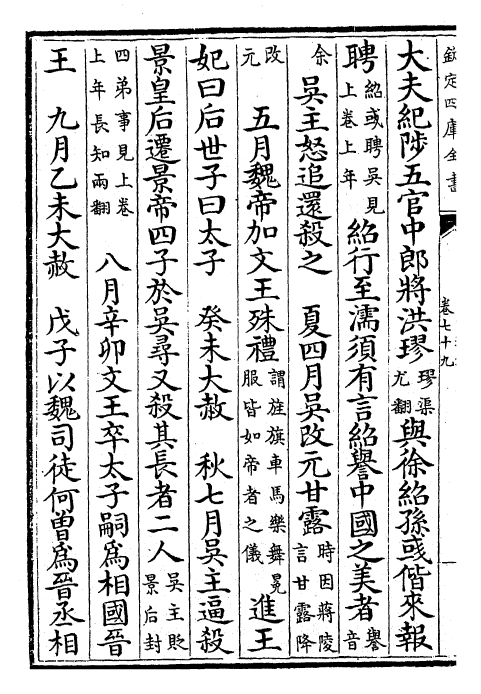 欽定四庫全書
卷七十九
大夫紀陟五官中郎將洪璆璆渠尤翻與徐紹孫彧偕來報
聘紹彧聘吳見上卷上年紹行至濡須有言紹譽中國之美者譽音
余 吳主怒追還殺之 夏四月吳改元甘露時因蔣陵言甘露降
改元 五月魏帝加文王殊禮謂旌旗車馬樂舞冕服皆如帝者之儀進王
妃曰后世子曰太子 癸未大赦 秋七月吳主逼殺
景皇后遷景帝四子於吳尋又殺其長者二人吳主貶景后封
四弟事見上卷上年長知兩翻 八月辛卯文王卒太子嗣爲相國晉
王 九月乙未大赦 戊子以魏司徒何曾爲晉丞相